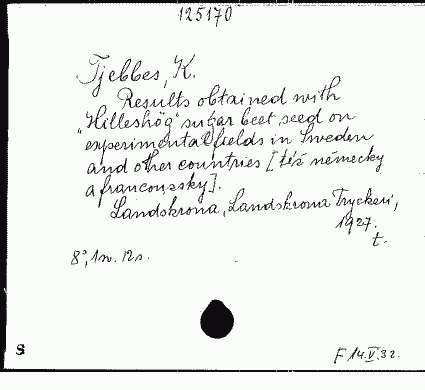 125170
Tjebbes, K.
Results obtained with
„Hilleshög" sugar beet seed on
experimental fields in Sweden
and other countries [též německy
a francouzsky].
Landskrona, Landskrona Tryckeri,
1927.
t.
8°, 1n. 12s.
S
F 14.V.32.